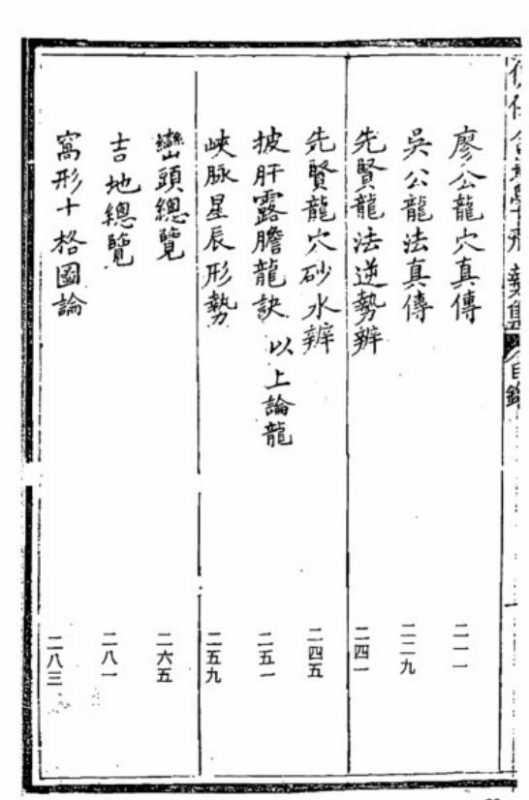 廖公龍穴真傳 二一一
吳公龍法真傳 二二九
先賢龍法逆勢辨 二四一
先賢龍穴砂水辨 二四五
披肝露膽龍訣 以上論龍 二五一
峽脉星辰形勢 二五九
巒頭總覽 二六五
吉地總覽 二八一
窩形十格圖論 二八三
目錄